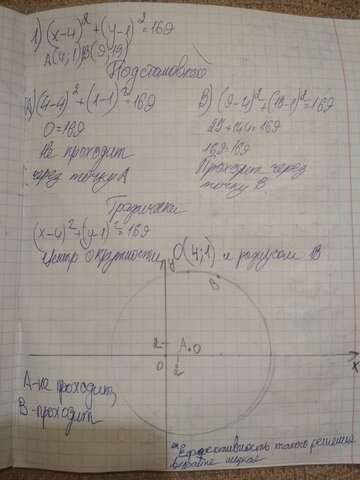 1) (x-4)² + (y-1)² = 169
A(4;1) B(9;13)
Подстановкой
A) (4-4)² + (1-1)² = 169
0 = 169
Не проходит
через точку A
B) (9-4)² + (13-1)² = 169
25 + 144 = 169
169 = 169
Проходит через
точку B
Графически
(x-4)² + (y-1)² = 169
Центр окружности O(4;1) и радиусом 13
y
B
A O
0
x
A - не проходит,
B - проходит
Эффективность такого решения